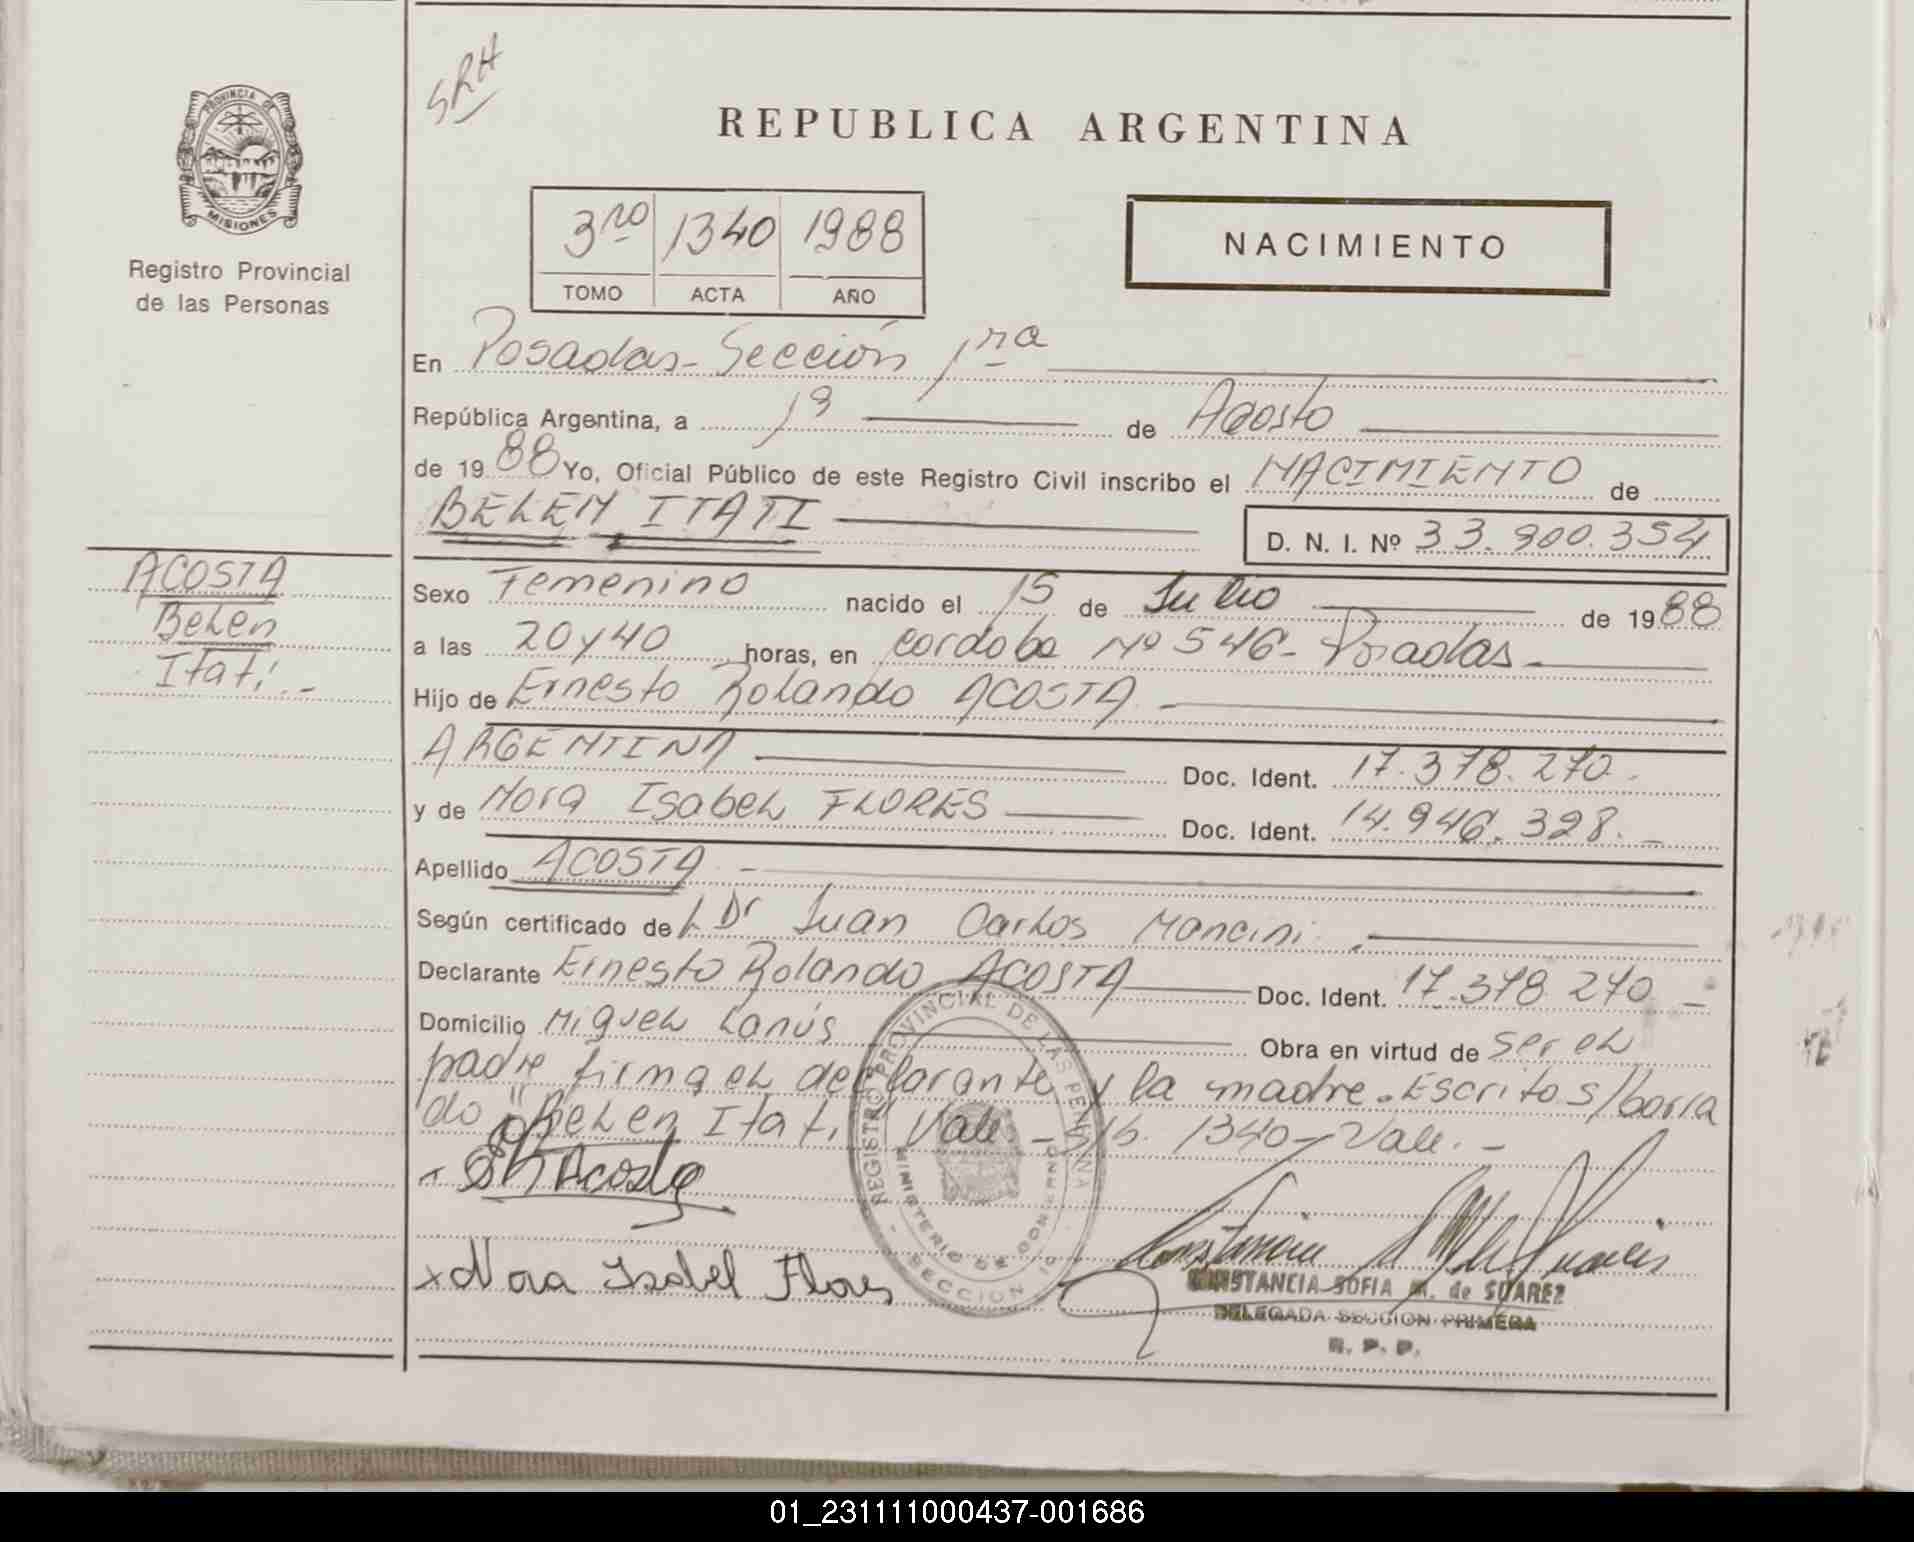 SRH
PROVINCIA DE
MISIONES
Registro Provincial
de las Personas
REPUBLICA ARGENTINA
3ro 1340 1988
TOMO ACTA AÑO
NACIMIENTO
En Posadas - Sección 1ra
República Argentina, a 19 de Agosto
de 1988 Yo, Oficial Público de este Registro Civil inscribo el NACIMIENTO de
BELEN ITATI
D. N. I. Nº 33.900.354
ACOSTA
Belen
Itatí.-
Sexo Femenino nacido el 15 de Julio de 1988
a las 20 y 40 horas, en Cordoba Nº 546 - Posadas -
Hijo de Ernesto Rolando ACOSTA -
ARGENTINA Doc. Ident. 17.378.270.
y de Nora Isabel FLORES Doc. Ident. 14.946.328. -
Apellido ACOSTA -
Según certificado del Dr Juan Carlos Mancini.
Declarante Ernesto Rolando ACOSTA Doc. Ident. 17.378.270 -
Domicilio Miguel Lanús Obra en virtud de ser el
padre firma el declarante y la madre. Escrito s/borra
do "Belen Itatí" Vale - 1340 - Vale. -
Acosta
REGISTRO PROVINCIAL DE LAS PERSONAS
MINISTERIO DE GOBIERNO
SECCION 1º
x Nora Isabel Flores
CONSTANCIA SOFIA M. de SUAREZ
DELEGADA SECCION PRIMERA
R. P. P.
01_231111000437-001686